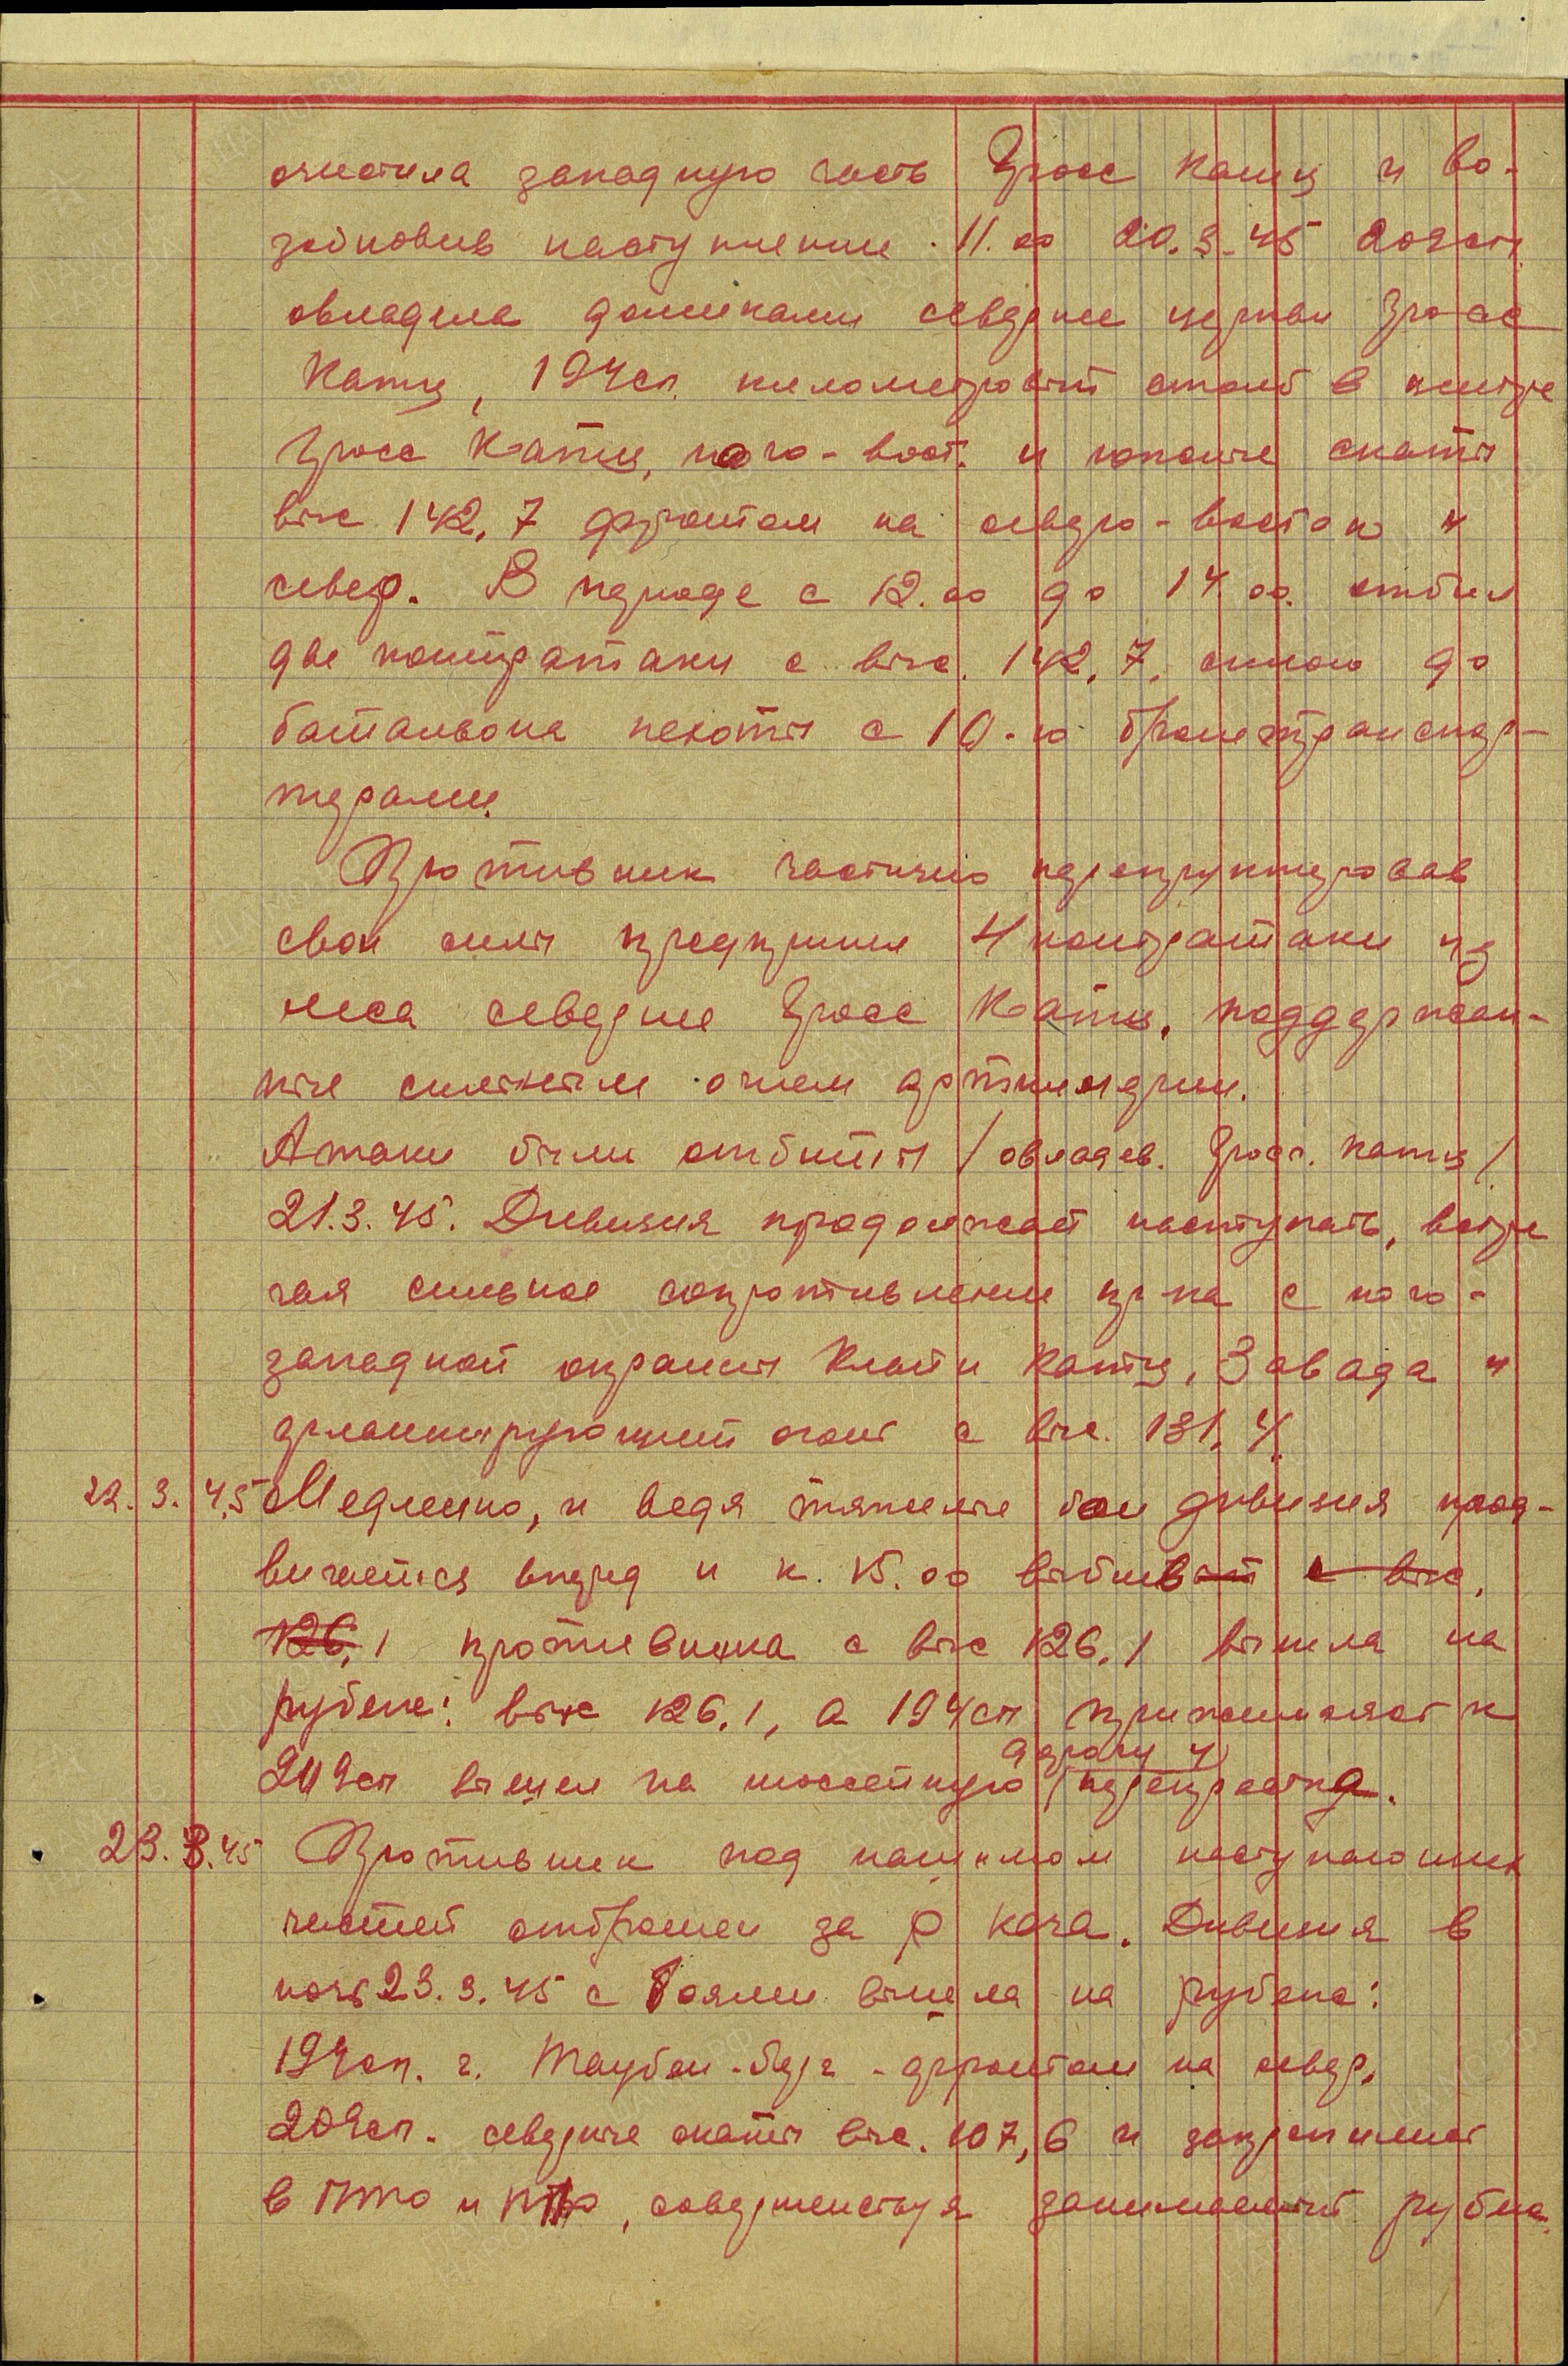 очистила западную часть Гросс Катц и во-
зобновив наступление 11.00 20.3.45 209сп.
овладела домиками севернее церкви Гросс
Катц, 194сп. километровый столб в центре
Гросс Катц, юго-вост. и южные скаты
выс 142,7 фронтом на северо-восток и
север. В периоде с 12.00 до 14.00. отбил
две контратаки с выс. 142,7. силою до
батальона пехоты с 10-ю бронетранспор-
терами.
Противник частично перегруппировав
свои силы предпринял 4 контратаки из
леса севернее Гросс Катц, поддержан-
ные сильным огнем артиллерии.
Атаки были отбиты /овладев. Гросс. Катц/
21.3.45. Дивизия продолжает наступать, встре
чая сильное сопротивление пр-ка с юго-
западной окраины Кляйн Катц, Завада и
фланкирующий огонь с выс. 131,4.
22.3.45 Медленно, и ведя тяжелые бои дивизия прод-
вигается вперед и к 15.00 выбивает с выс.
126,1 противника с выс 126,1 вышла на
рубеж: выс 126,1, а 194сп примыкает к
209сп вышел на шоссейную дорогу у перекрестка.
23.3.45 Противник под нажимом наступающих
частей отброшен за р Кача. Дивизия в
ночь 23.3.45 с боями вышла на рубеж:
194сп. г. Таубен-берг - фронтом на север,
209сп. северные скаты выс. 107,6 и закрепились
в ПТО и ПТР, совершенствуя занимаемый рубеж.